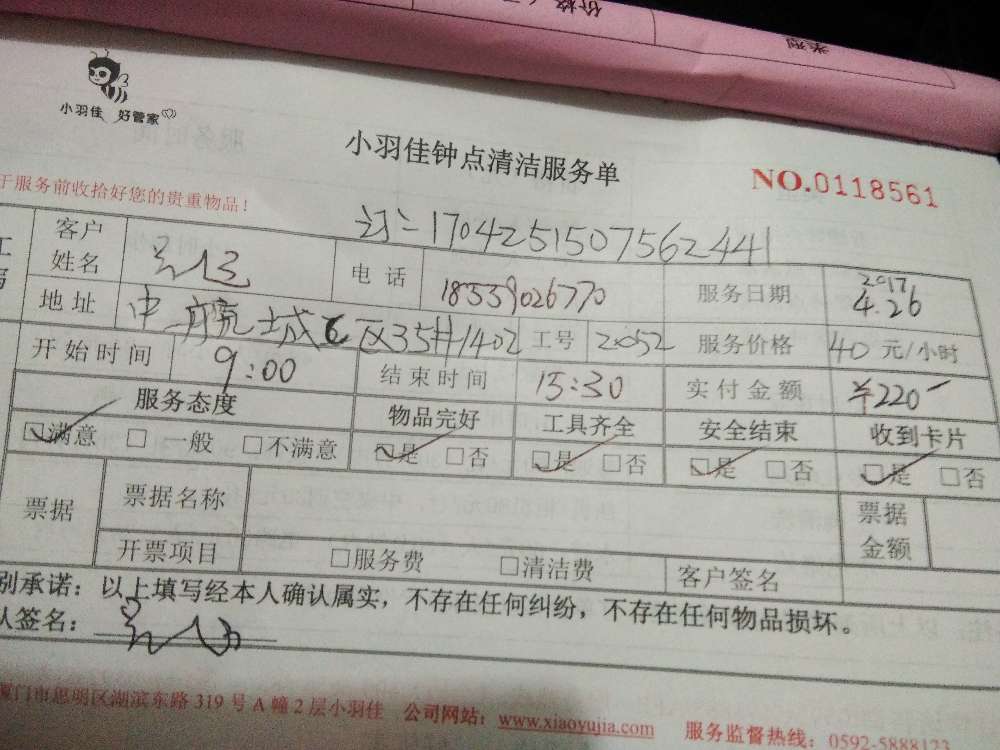 价格
类型
小羽佳 好管家
小羽佳钟点清洁服务单
NO.0118561
于服务前收拾好您的贵重物品！
订：1704251507562441
客户姓名 电话 18539026770 服务日期 2017 4.26
地址 中 城 区35#1402 工号 22052 服务价格 40 元/小时
开始时间 9:00 结束时间 15:30 实付金额 ¥220
服务态度 物品完好 工具齐全 安全结束 收到卡片
☑满意 □一般 □不满意 ☑是 □否 ☑是 □否 ☑是 □否 ☑是 □否
票据 票据名称 票据金额
开票项目 □服务费 □清洁费 客户签名
别承诺：以上填写经本人确认属实，不存在任何纠纷，不存在任何物品损坏。
认签名：
厦门市思明区湖滨东路 319 号 A 幢 2 层小羽佳 公司网站：www.xiaoyujia.com 服务监督热线：0592-5888123